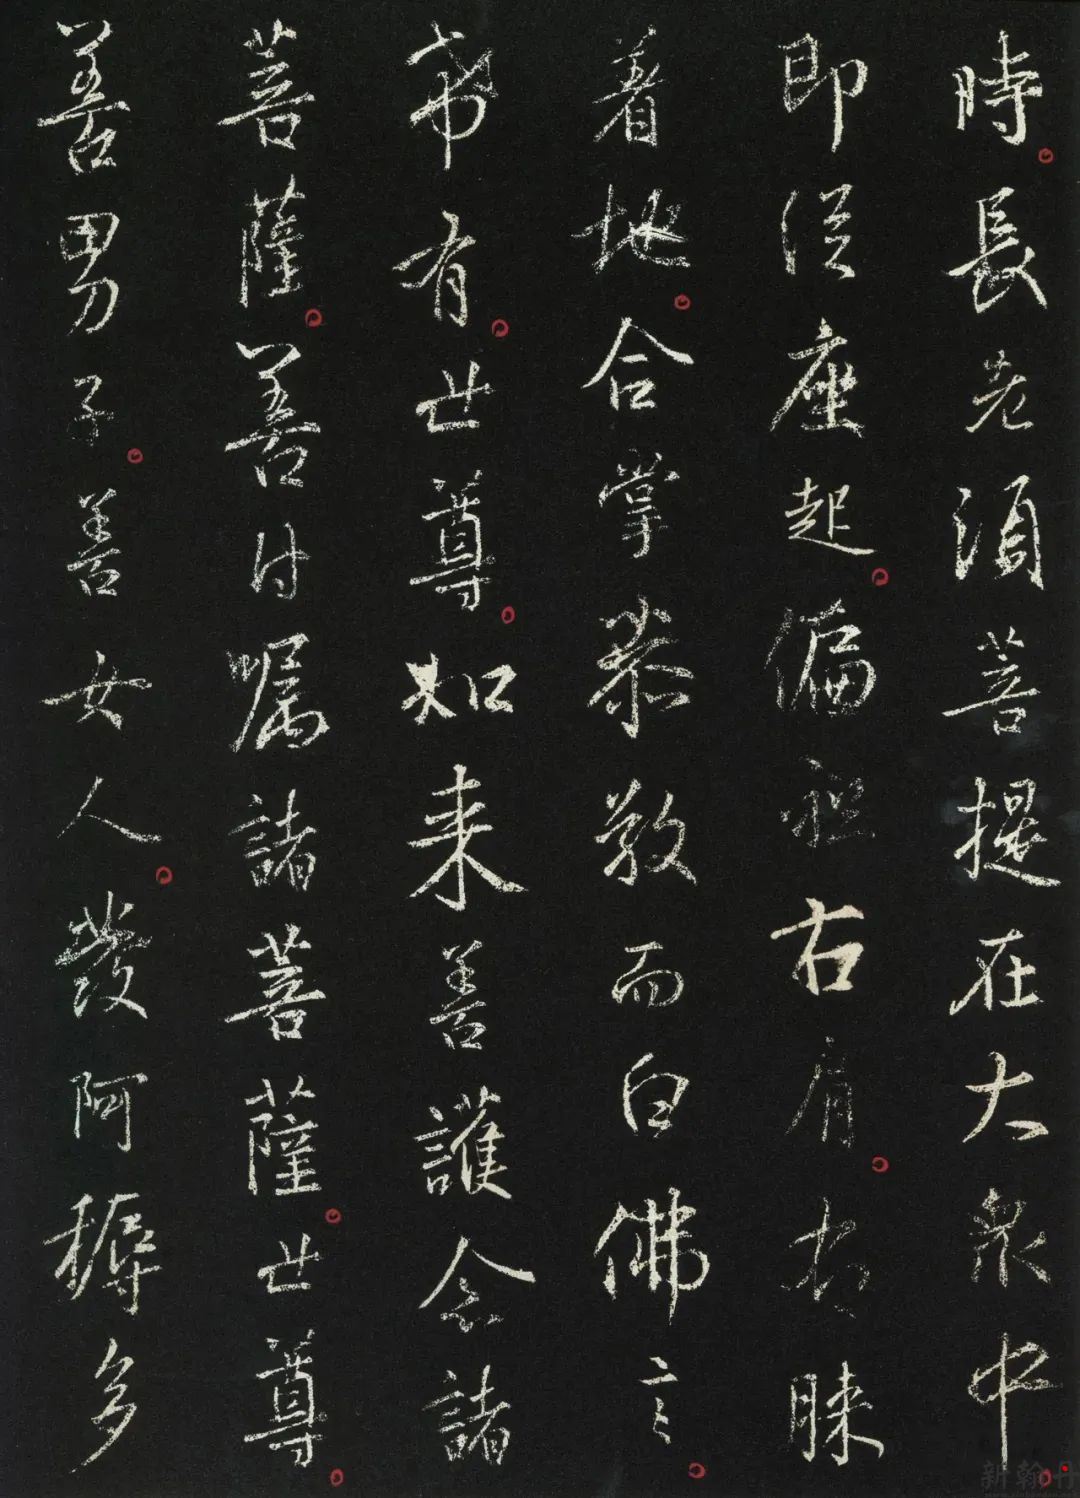 時長老須菩提在大衆中
即從座起偏袒右肩右膝
着地合掌恭敬而白佛言
希有世尊如来善護念諸
菩薩善付嘱諸菩薩世尊
善男子善女人發阿耨多
新翰丹